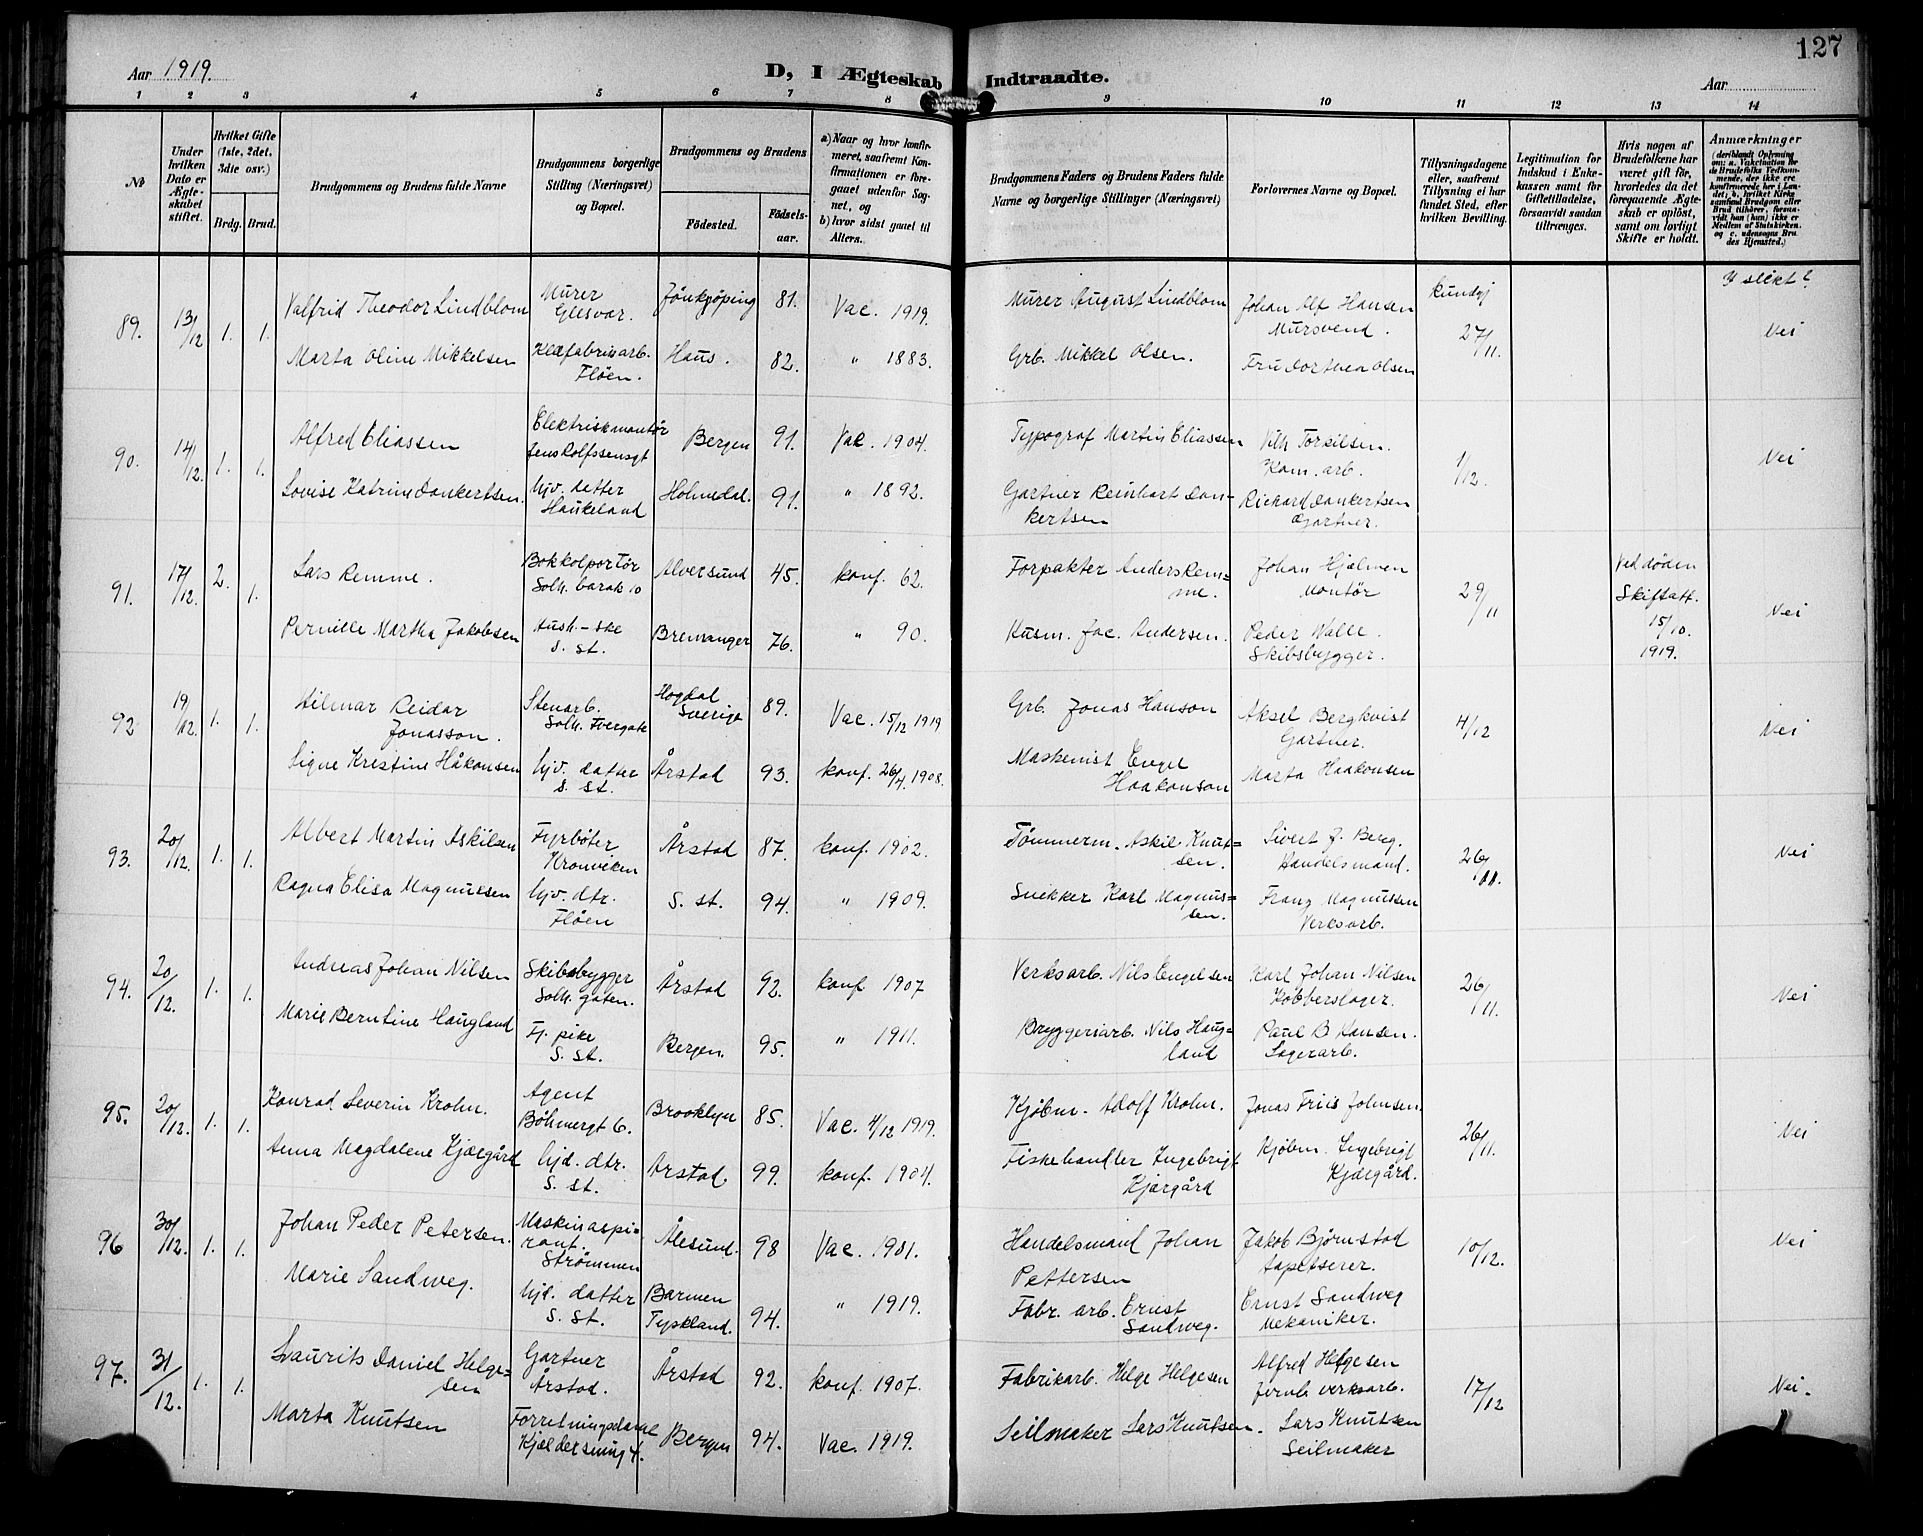 127
Aar 1919.
D, I Ægteskab Indtraadte.
Aar
1 2 3 4 5 6 7 8 9 10 11 12 13 14
No
Under hvilken Dato er Ægteskabet stiftet.
Hvilket Gifte (1ste, 2det, 3die osv.)
Brdg. Brud.
Brudgommens og Brudens fulde Navne
Brudgommens borgerlige Stilling (Næringsvei) og Bopæl.
Brudgommens og Brudens
Fødested.
Fødselsaar.
a) Naar og hvor konfirmeret, saafremt Konfirmationen er foregaaet udenfor Sognet, og
b) hvor sidst gaaet til Alters.
Brudgommens Faders og Brudens Faders fulde Navne og borgerlige Stillinger (Næringsvei)
Forlovernes Navne og Bopæl.
Tillysningsdagene eller, saafremt Tillysning ei har fundet Sted, efter hvilken Bevilling.
Legitimation for Indskud i Enkekassen samt for Giftetilladelse, forsaavidt saadan tiltrænges.
Hvis nogen af Brudefolkene har været gift før, hvorledes da det foregaaende Ægteskab er opløst, samt om lovligt Skifte er holdt.
Anmærkninger
I slekt?
89. 13/12 1. 1. Valfrid Theodor Lindblom Murer Glesvar. Jönkjöping 81. Vac. 1919. Murer August Lindblom Johan Alf Hansen Mursvend. kundgj 27/11. Nei
Marta Oline Mikkelsen Fløen. Haus. 82. " 1883. Grb. Mikkel Olsen. Fru Dorthea Olsen
90. 14/12. 1. 1. Alfred Eliassen Elektriskmontør Jens Rolfssensgt Bergen 91. Vac. 1904. Typograf Martin Eliassen Vilh Torkilsen. Kom. arb. 1/12. Nei
Lovise Katrine Dankertsen. hjv. datter Haukeland Holmedal. 91. " 1892. Gartner Reinhart Dankertsen Richard Dankertsen Gartner.
91. 17/12. 2. 1. Lars Remme. Bokkolportør Solh. barak 10 Alversund 45. konf. 62. Forpakter Anders Remme. Johan Hjelmen Montør 29/11 Ved døden Skifteatt. 15/10. 1919. Nei
Pernille Martha Jakobsen s. st. Bremanger 76. " 90. Husm. Jac. Andersen. Peder Walle. Skibsbygger.
92 19/12. 1. 1. Hilmar Reidar Jonasson. Stenarb. Solh. Tvergate Hogdal Sverige 89. Vac. 15/12 1919 Grb. Jonas Hanson Aksel Bergkvist Gartner. 4/12 Nei
Signe Kristine Håkonsen hjv. datter s. st. Årstad 93. konf. 26/4 1908. Maskenist Engel Haakonson Marta Haakonsen
93. 20/12. 1. 1. Albert Martin Askilsen Fyrbøter Kronviken Årstad 87. konf. 1902. Tømmerm. Askil Knutsen. Sivert J. Berg. Handelsmand. 26/11. Nei
Ragna Elisa Magnussen hjv. dtr. Fløen S. st. 94. " 1909. Snekker Karl Magnussen. Franz Magnussen Verksarb.
94. 20/12. 1. 1. Andreas Johan Nilsen Skibsbygger Solh. gaten. Årstad 92. konf 1907 Verksarb. Nils Engelsen Karl Johan Nilsen Kobberslager. 26/11. Nei
Marie Berntine Haugland Fj. pike S. st. Bergen. 95. " 1911. Bryggeriarb. Nils Haugland Paul B Hansen. Lagerarb.
95. 20/12. 1. 1. Konrad Severin Krohn. Agent Böhmergt 6. Brooklyn 85. Vac. 4/12 1919. Kjøbm. Adolf Krohn. Jonas Friis Johnsen. 26/11. Nei
Anna Magdalene Kjærgård hjd. dtr. S. st. Årstad. 99. konf. 1904. Fiskehandler Ingebrigt Kjærgård Kjøbm. Ingebrigt Kjærgård.
96 30/12. 1. 1. Johan Peder Petersen. Maskinaspirant. Strømmen Ålesund. 98 Vac. 1901. Handelsmand Johan Pettersen Jakob Bjørnstad tapetserer. 10/12. Nei
Marie Sandweg. hjd. datter S. st. Barmen Tyskland. 94. " 1919. Fabr. arb. Ernst Sandweg. Ernst Sandweg Mekaniker.
97. 31/12. 1. 1. Laurits Daniel Helgesen Gartner Årstad. Årstad 92. konf. 1907. Fabrikarb. Helge Helgesen Alfred Helgesen Jernb verksarb. 17/12 Nei.
Marta Knutsen Forretningsdame Bergen 94. Vac. 1919. Seilmaker Lars Knutsen. Lars Knutsen Seilmaker